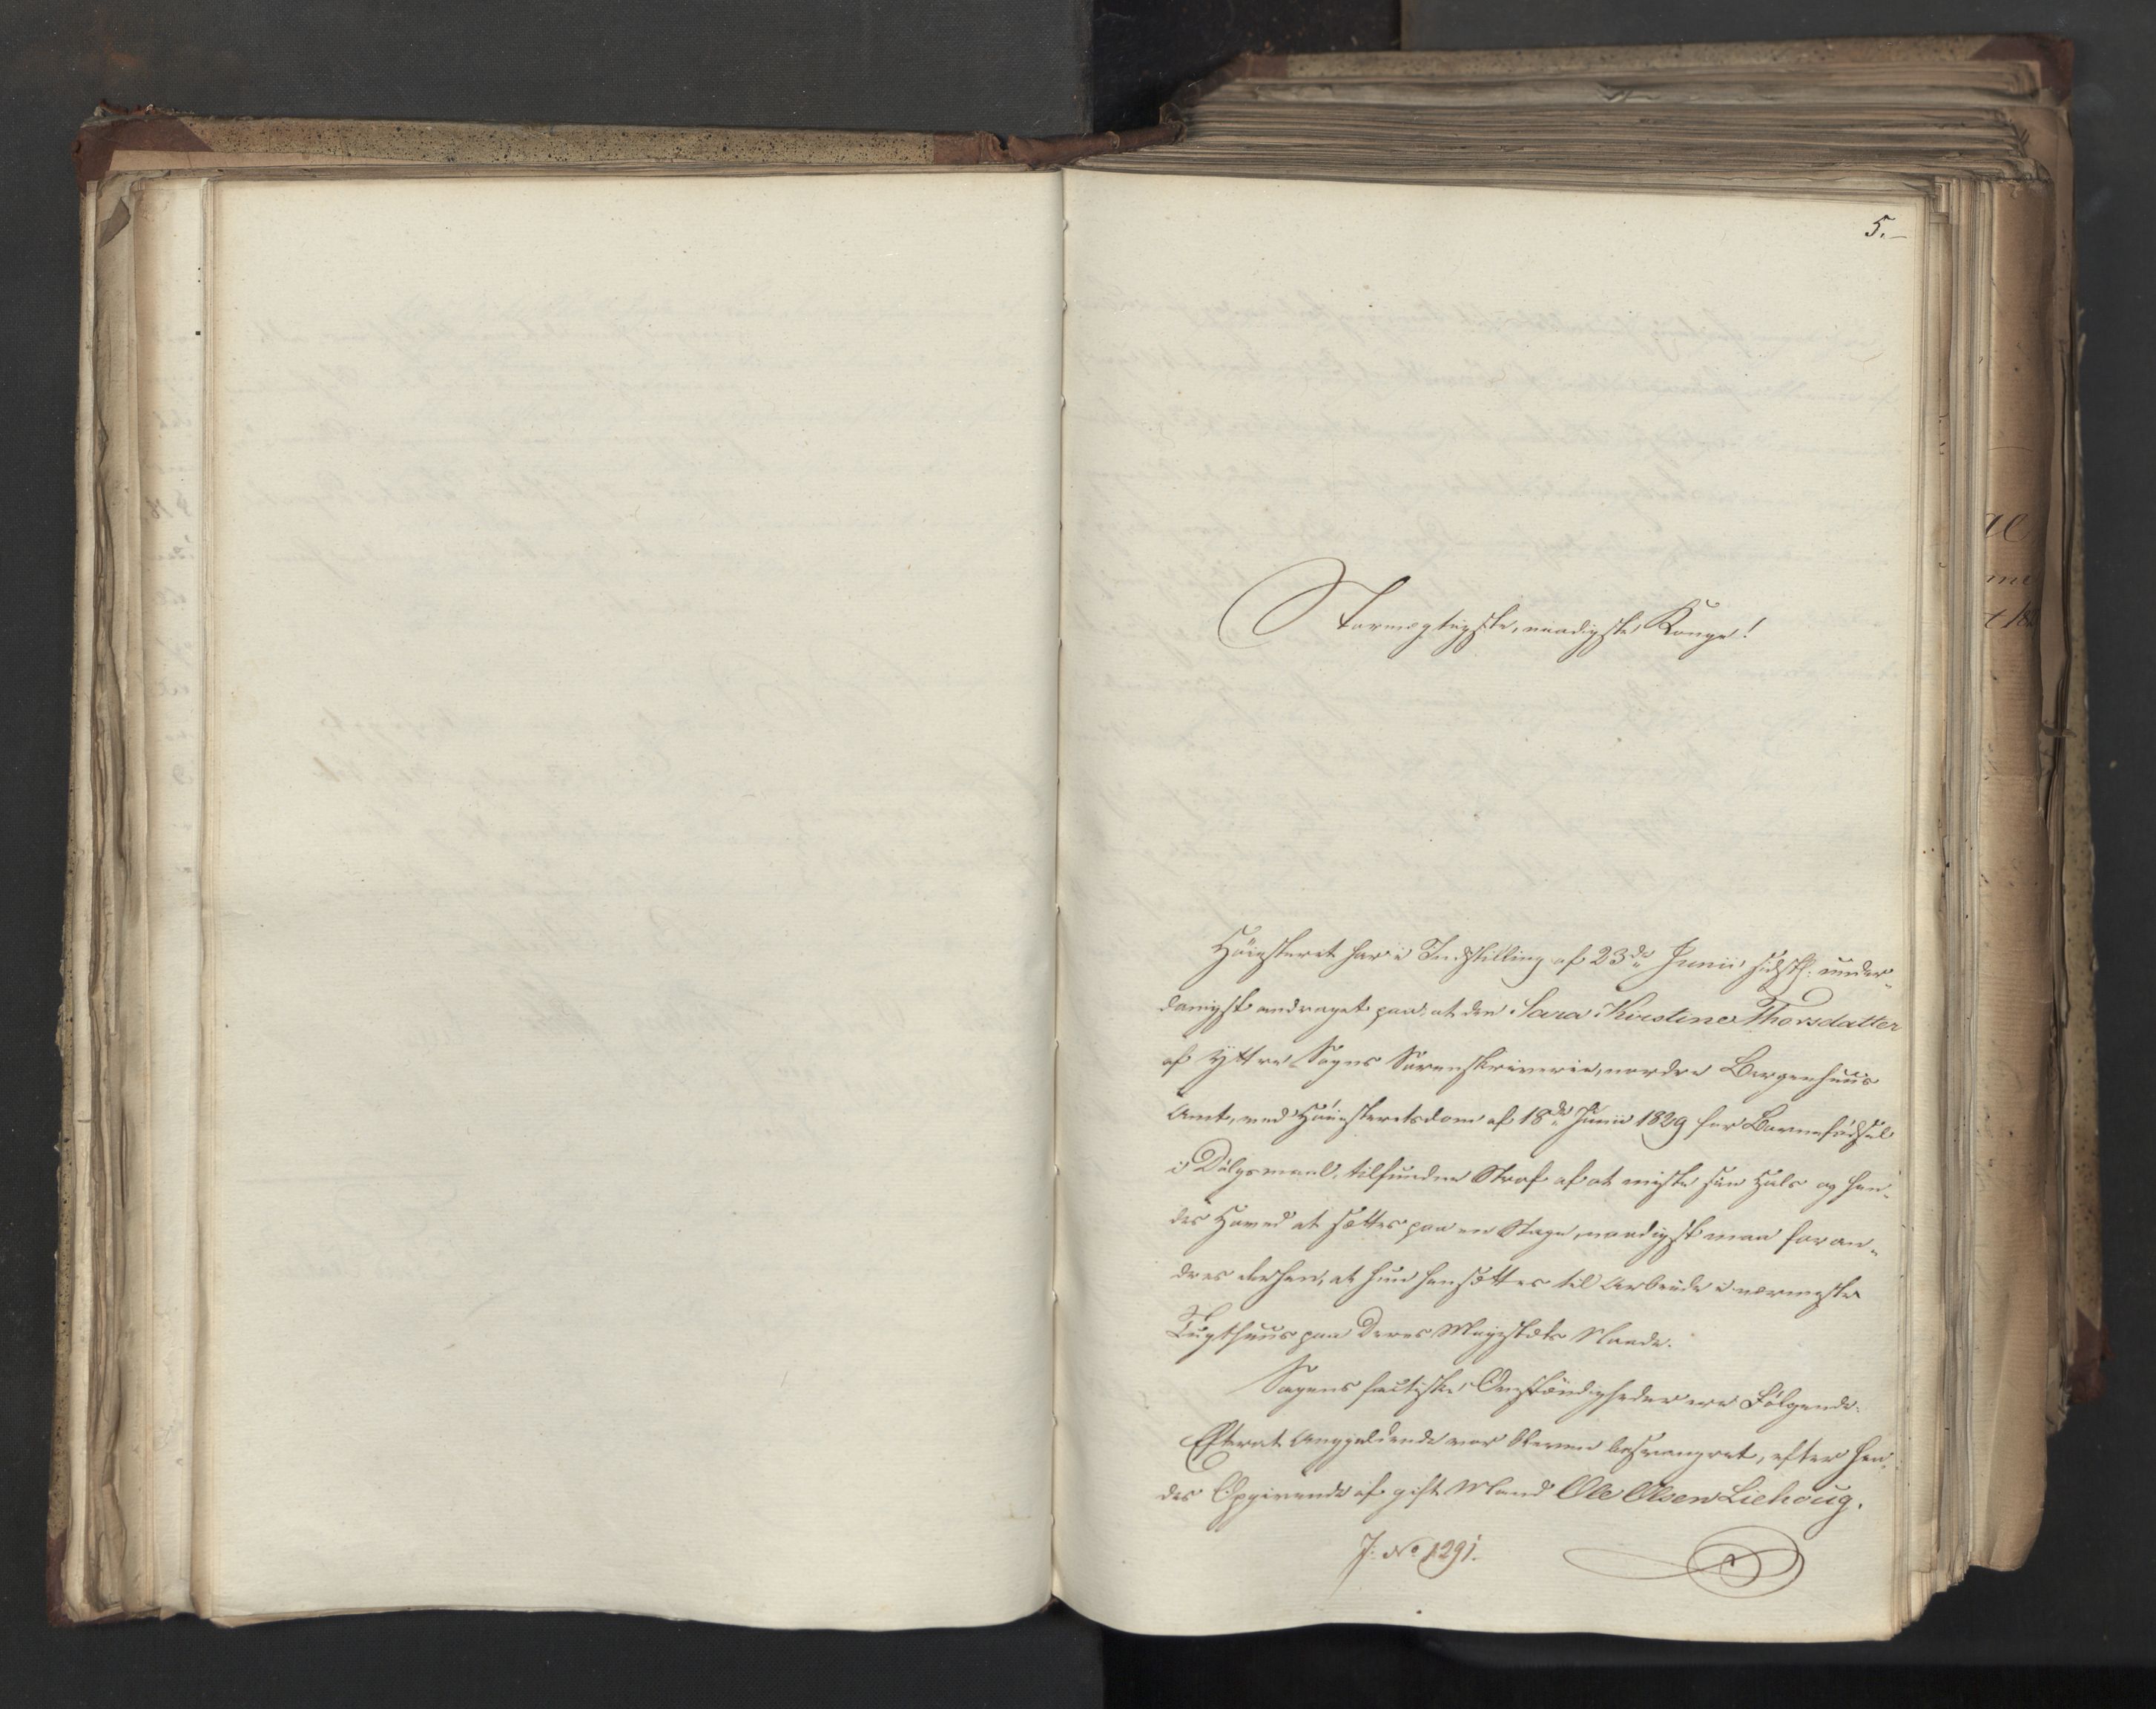 5.
Stormægtigste, naadigste Konge!
Höiesteret har i Indstilling af 23de Junii sidstl. under-
danigst andraget paa, at den Sara Kirstine Thorsdatter
af Yttre Sogns Sorenskriverie, nordre Bergenhuus
Amt, ved Höiesteretsdom af 18de Junii 1829 for Barnefödsel
i Dölgsmaal, tilfunden Straf af at miste sin Hals og hen-
des Hoved at sættes paa en Stage, naadigst maa foran-
dres derhen, at hun hensættes til Arbeide i nærmeste
Tugthuus paa Deres Majestæts Naade.
Sagens factiske Omstændigheder ere Fölgende.
Efterat Angjeldende var bleven besvangret, efter hen-
des Opgivende af gift Mand Ole Olsen Liehoug.
J: No 1291.
ae